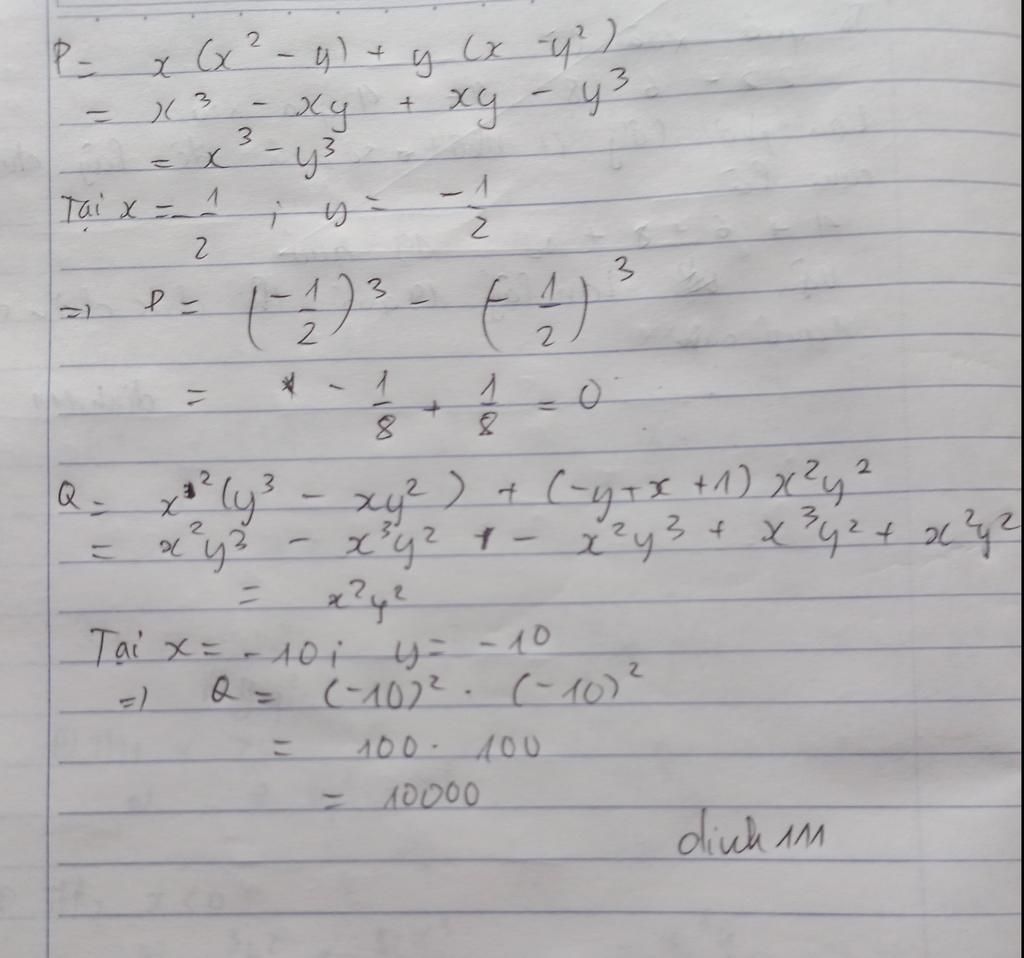 P = x (x² - y) + y (x - y²)
= x³ - xy + xy - y³
= x³ - y³
Tại x = -1/2 ; y = -1/2
=> P = (-1/2)³ - (-1/2)³
= -1/8 + 1/8 = 0
Q = x²(y³ - xy²) + (-y + x + 1) x²y²
= x²y³ - x³y² - x²y³ + x³y² + x²y²
= x²y²
Tại x = -10; y = -10
=> Q = (-10)² . (-10)²
= 100 . 100
= 10000
dinh 111